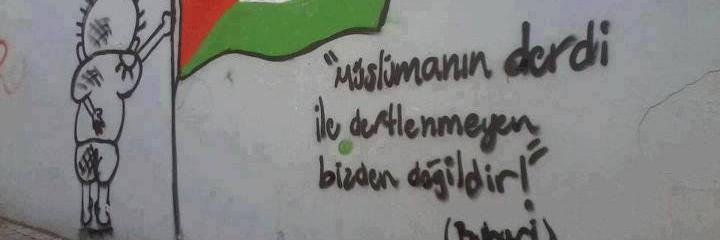 "Müslümanın derdi
ile dertlenmeyen
bizden değildir!"
(Buhari)